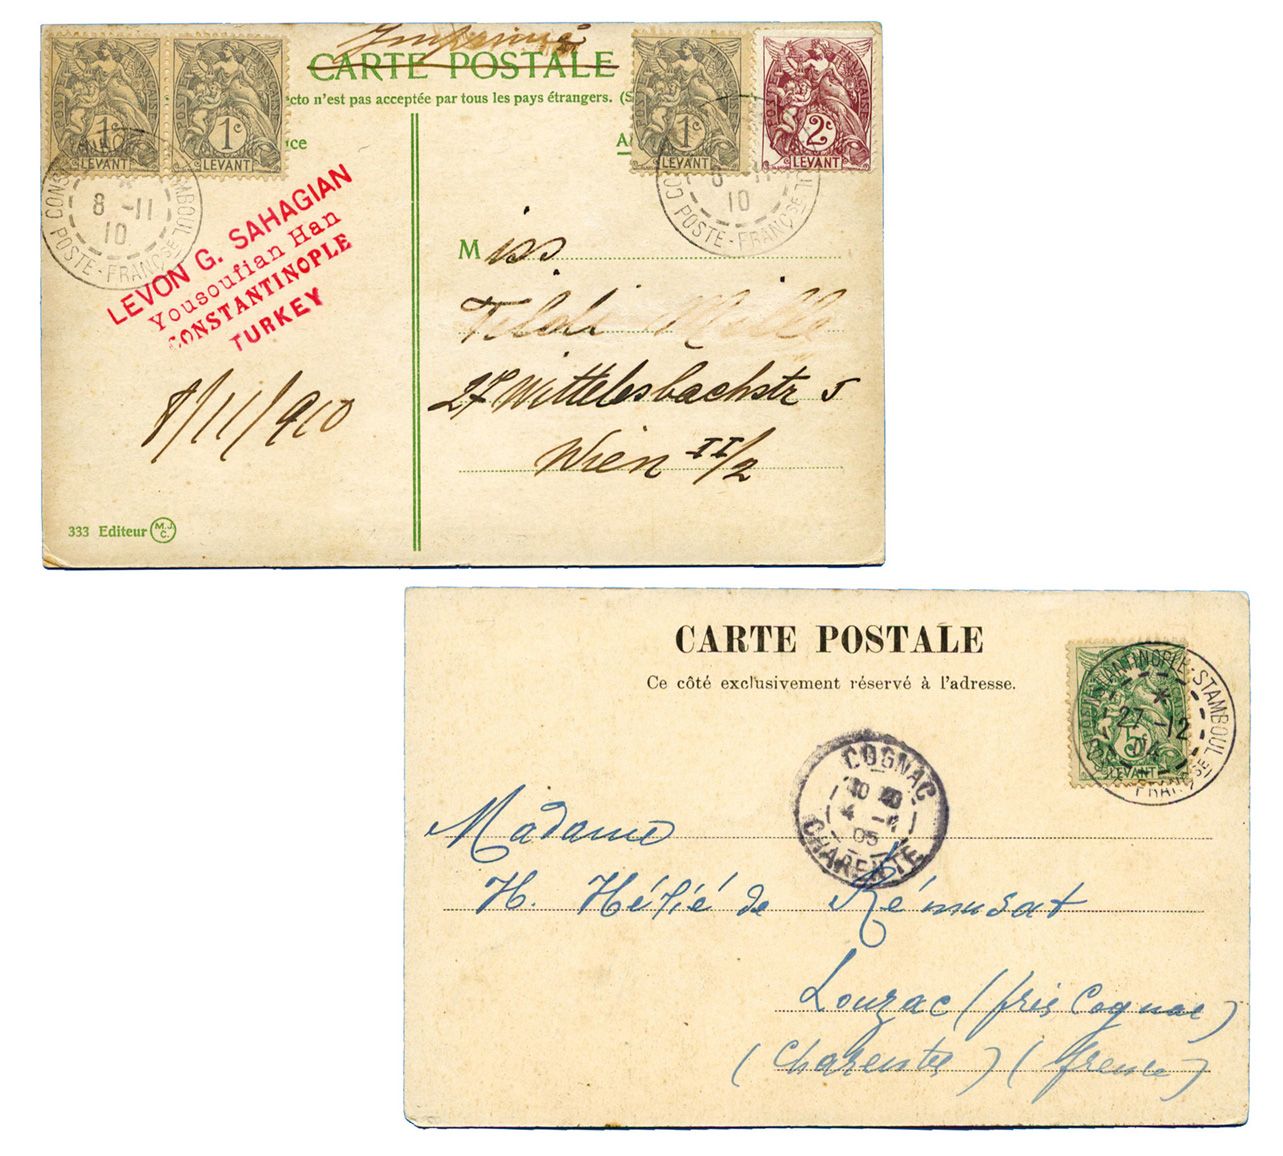 Imprimé
CARTE POSTALE
cto n'est pas acceptée par tous les pays étrangers. (S
POSTE FRANÇAISE
1c
LEVANT
POSTE FRANÇAISE
1c
LEVANT
POSTE FRANÇAISE
1c
LEVANT
POSTE FRANÇAISE
2c
LEVANT
ice
8 -11
10
POSTE-FRANÇSE
8 -11
10
POSTE-FRANÇSE
LEVON G. SAHAGIAN
Yousoufian Han
CONSTANTINOPLE
TURKEY
8/11/910
333 Editeur M.J.C.
Miss
27 Wittelesbachstr 5
Wien II/2
CARTE POSTALE
Ce côté exclusivement réservé à l'adresse.
5c
LEVANT
CONSTANTINOPLE-STAMBOUL
27 -12
04
COGNAC
05
CHARENTE
Madame
H. Hélié de Rémusat
Louzac (près Cognac)
(Charente) (France)